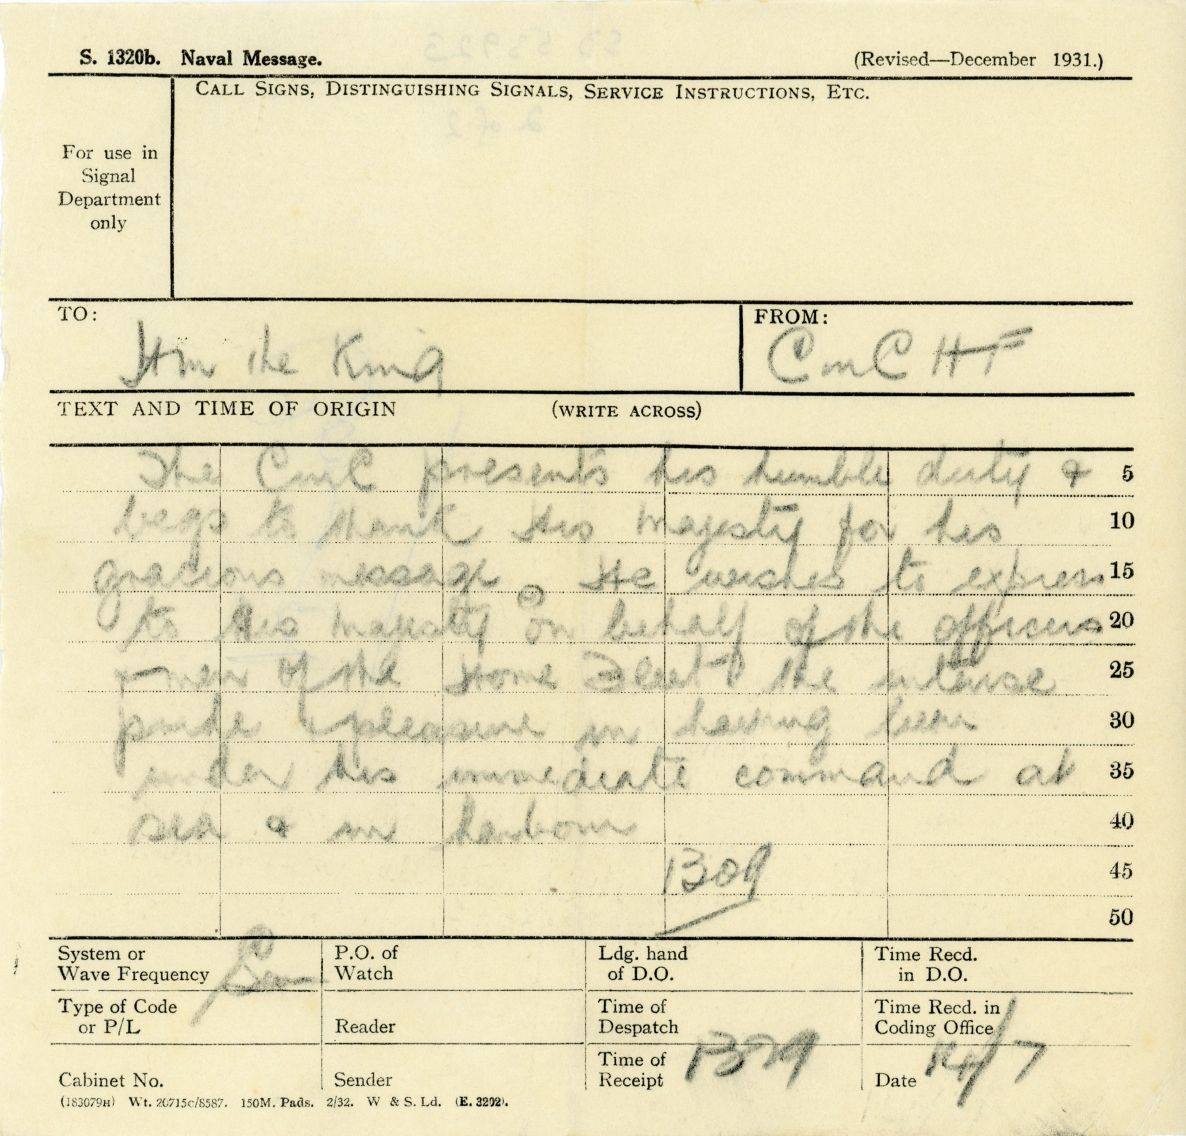 S. 1320b. Naval Message. (Revised—December 1931.)
CALL SIGNS, DISTINGUISHING SIGNALS, SERVICE INSTRUCTIONS, ETC.
For use in
Signal
Department
only
TO:
HM the King
FROM:
CinC HF
TEXT AND TIME OF ORIGIN (WRITE ACROSS)
The CinC presents his humble duty & 5
begs to thank His Majesty for his 10
gracious message. He wishes to express 15
to His Majesty on behalf of the officers 20
& men of the Home Fleet the intense 25
pride & pleasure in having been 30
under his immediate command at 35
sea & in harbour 40
1309 45
50
System or
Wave Frequency
P.O. of
Watch
Ldg. hand
of D.O.
Time Recd.
in D.O.
Type of Code
or P/L
Reader
Time of
Despatch
Time Recd. in
Coding Office
Cabinet No.
Sender
Time of
Receipt 1329
Date 14/7
(183079H) Wt. 20715c/8587. 150M. Pads. 2/32. W & S. Ld. (E. 3202).